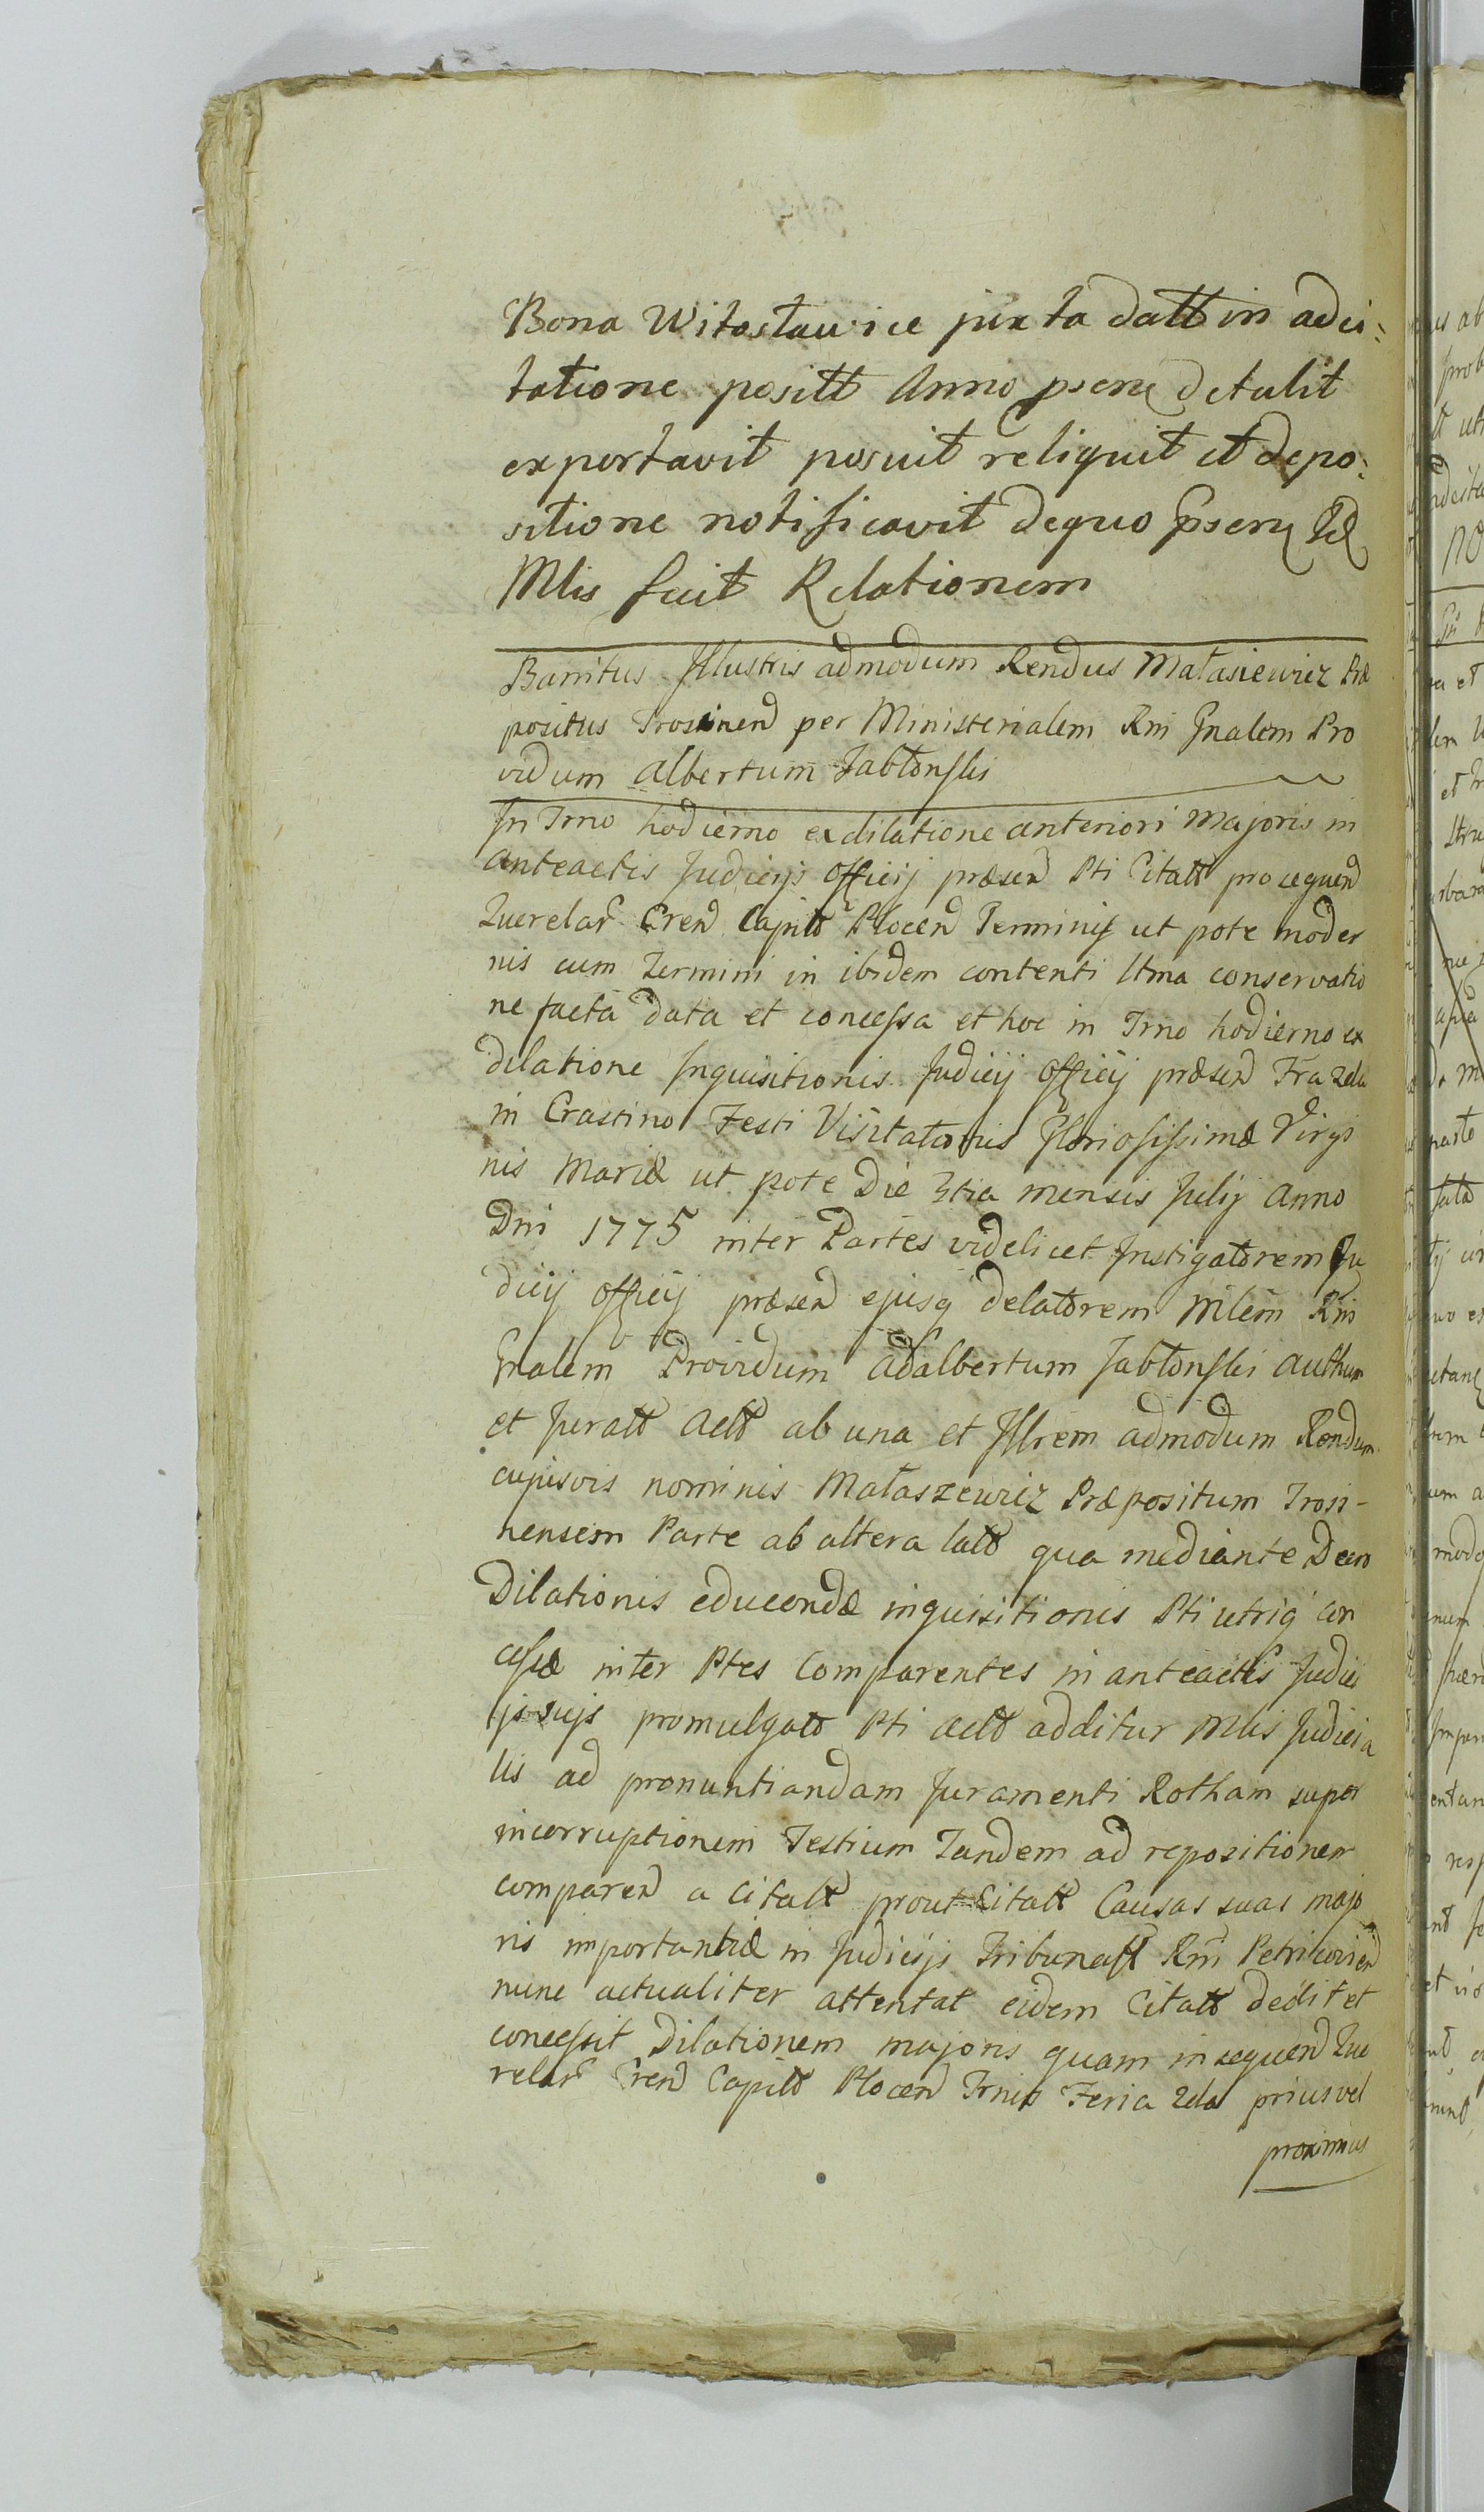 Bona Witosławice juxta datt in adci:
tatione positt Anno psen detulit
exportavit posuit reliquit et depo:
sitione notificavit dequo psens Id
Mlis fecit Relationem
Banitus Illustris admodum Rendus Małasiewicz Præ
positus Trosinend per Ministerialem Rni Gnalem Pro
vidum Albertum Jabłonski
In Trno hodierno ex dilatione anteriori majoris in
anteactis Judicijs Officij præsen Pti Citatt procequend
Querelar Cren Capitt Plocen Terminis ut pote moder
nis cum Termini in ibidem contenti Itma conservatio
ne facta data et concessa et hoc in Trno hodierno ex
dilatione Inquisitionis Judicij Officij præsen Fra 2da
in Crastino Festi Visitationis Gloriosissimæ Virgi
nis Mariæ ut pote Die 3tia mensis Julij Anno
Dni 1775 inter Partes videlicet Instigatorem Ju
dicij Officij præsen ejusq delatorem Mlem Rni
Gnalem Providum Adalbertum Jabłonski Authum
et Juratt Actt ab una et Illrem admodum Rendum
cujusvis nominis Małaszewicz Præpositum Trosi-
nensem Parte ab altera Catt qua mediante Decro
Dilationis educendæ inquisitionis Pti utriq con
cessæ inter Ptes Comparentes in anteactis Judici
js sujs promulgatt Pti Actt additur Mlis Judicia
lis ad pronuntiandam Juramenti Rotham super
incorruptionem Testium Tandem ad repositionem
comparen a Citatt prout Citatt Causas suas majo
ris importantiæ in Judicijs Tribunatt Rni Petricovien
nunc actualiter attentat eidem Citatt dedit et
concessit Dilationem majoris quam in sequend Que
relar Cren Capitt Plocen Trnis Feria 2da prius vel
proximius